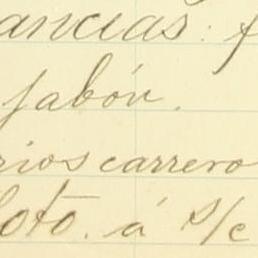 ancias: f
jabón.
rios carrero
loto. á s/c